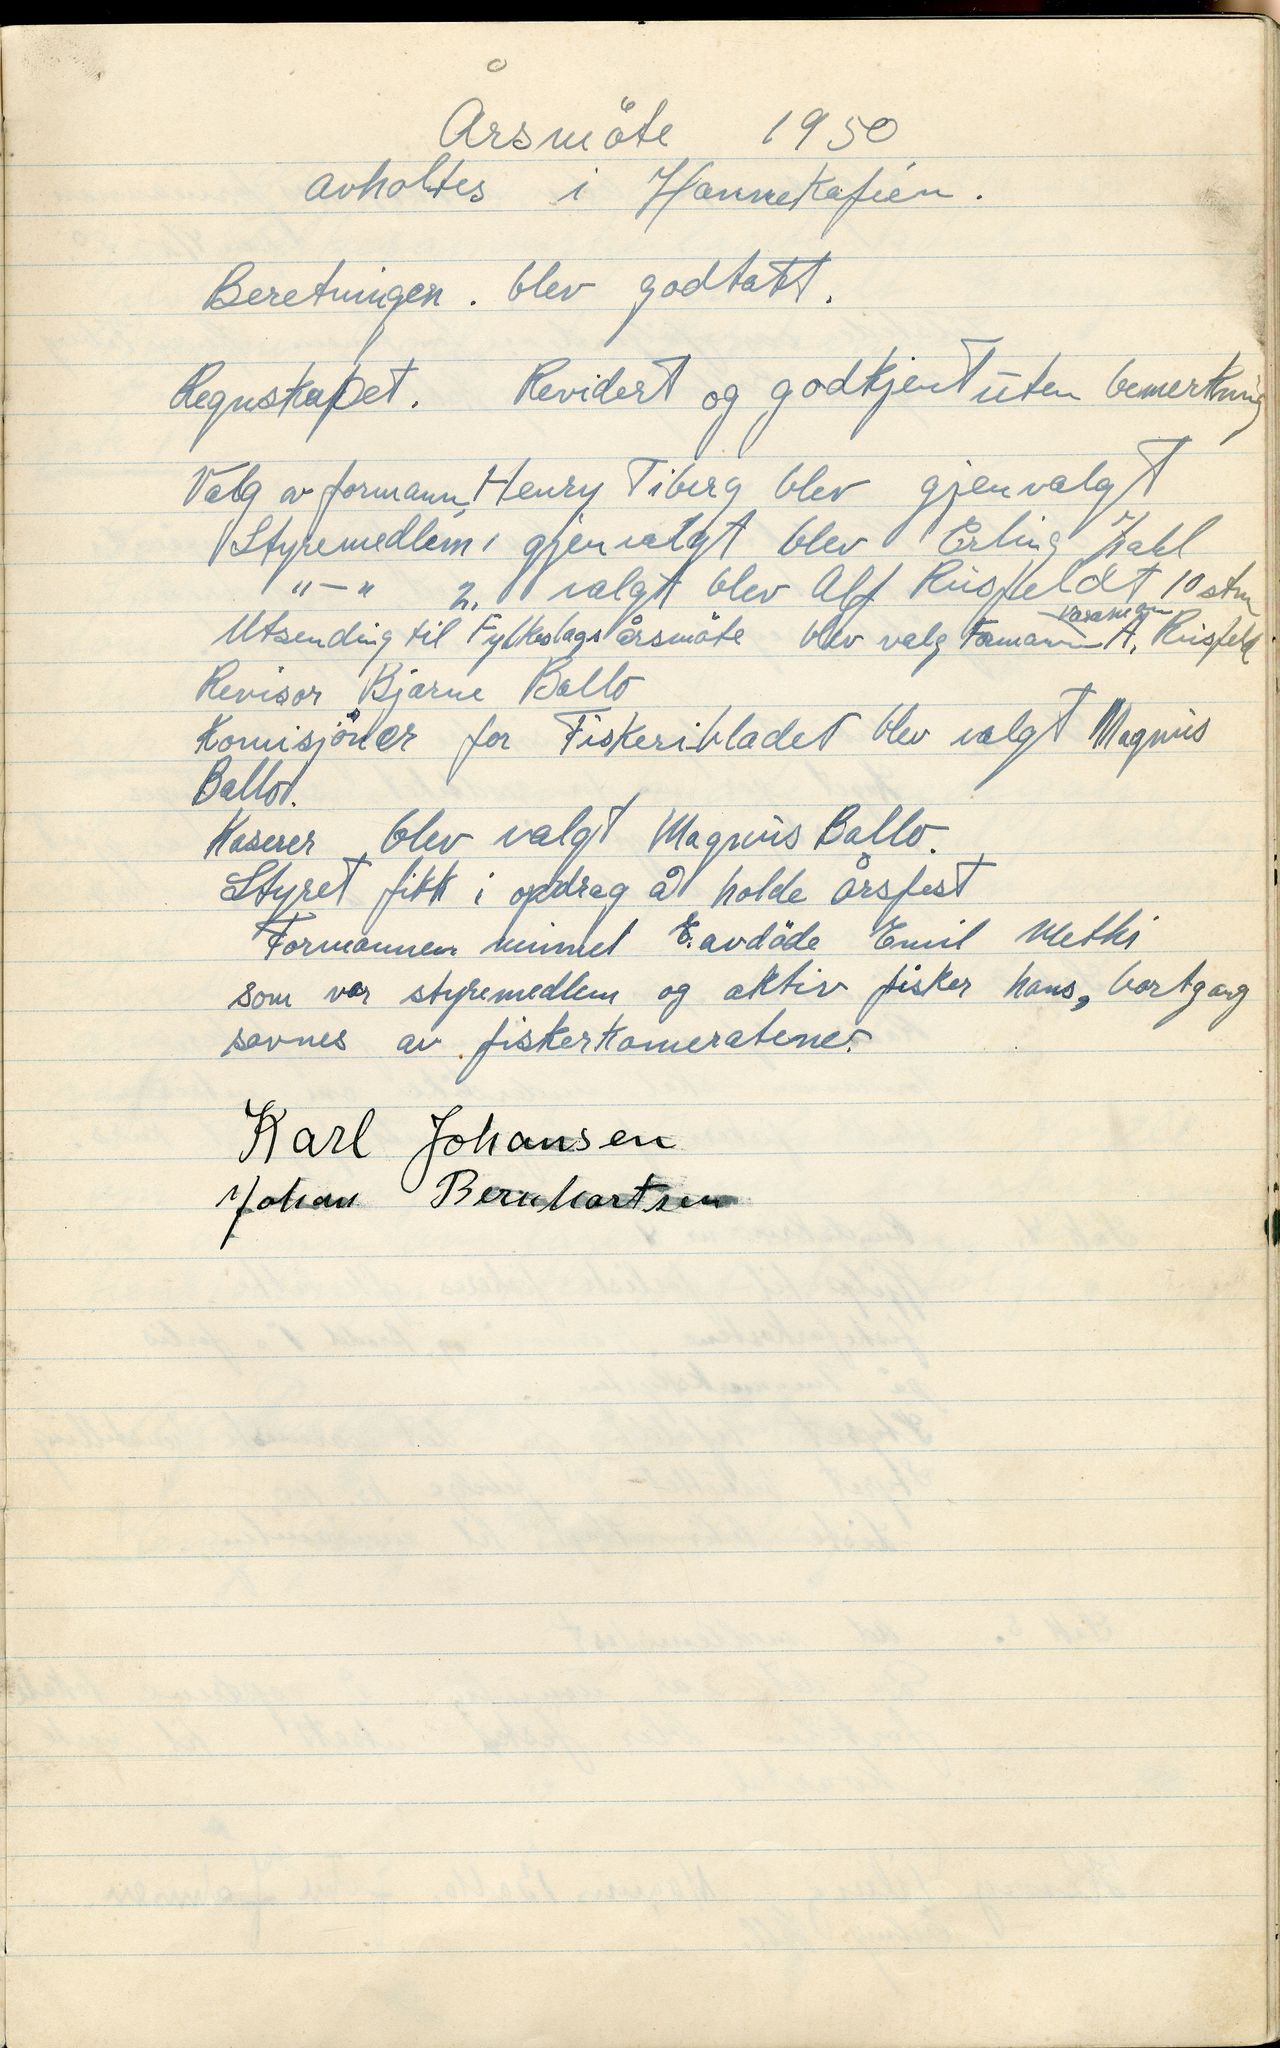 Årsmöte 1950
avholtes i Hannekaféen.
Beretningen. blev godtatt.
Regnskapet. Revidert og godkjent uten bemerkning
Valg av formann Henry Tiberg blev gjenvalgt
Styremedlem 1 gjenvalgt blev Erling Zahl
"-" 2. valgt blev Alf Riisfeldt 10 stm
varamann
Utsending til Fylkeslags årsmöte blev valg Formann A. Riisfeld
Revisor Bjarne Ballo
Komisjöner for Fiskeribladet blev valgt Magnus
Ballo.
Kaserer blev valgt Magnus Ballo.
Styret fikk i opdrag å holde årsfest
Formannen minnet E. avdöde Emil
som var styremedlem og aktiv fisker hans, bortgang
savnes av fiskerkameratene.
Karl Johansen
Johan Bernhartsen